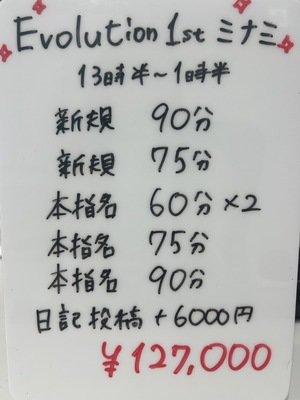 Evolution 1st ミナミ
13時半～1時半
新規 90分
新規 75分
本指名 60分×2
本指名 75分
本指名 90分
日記投稿 +6000円
¥127,000